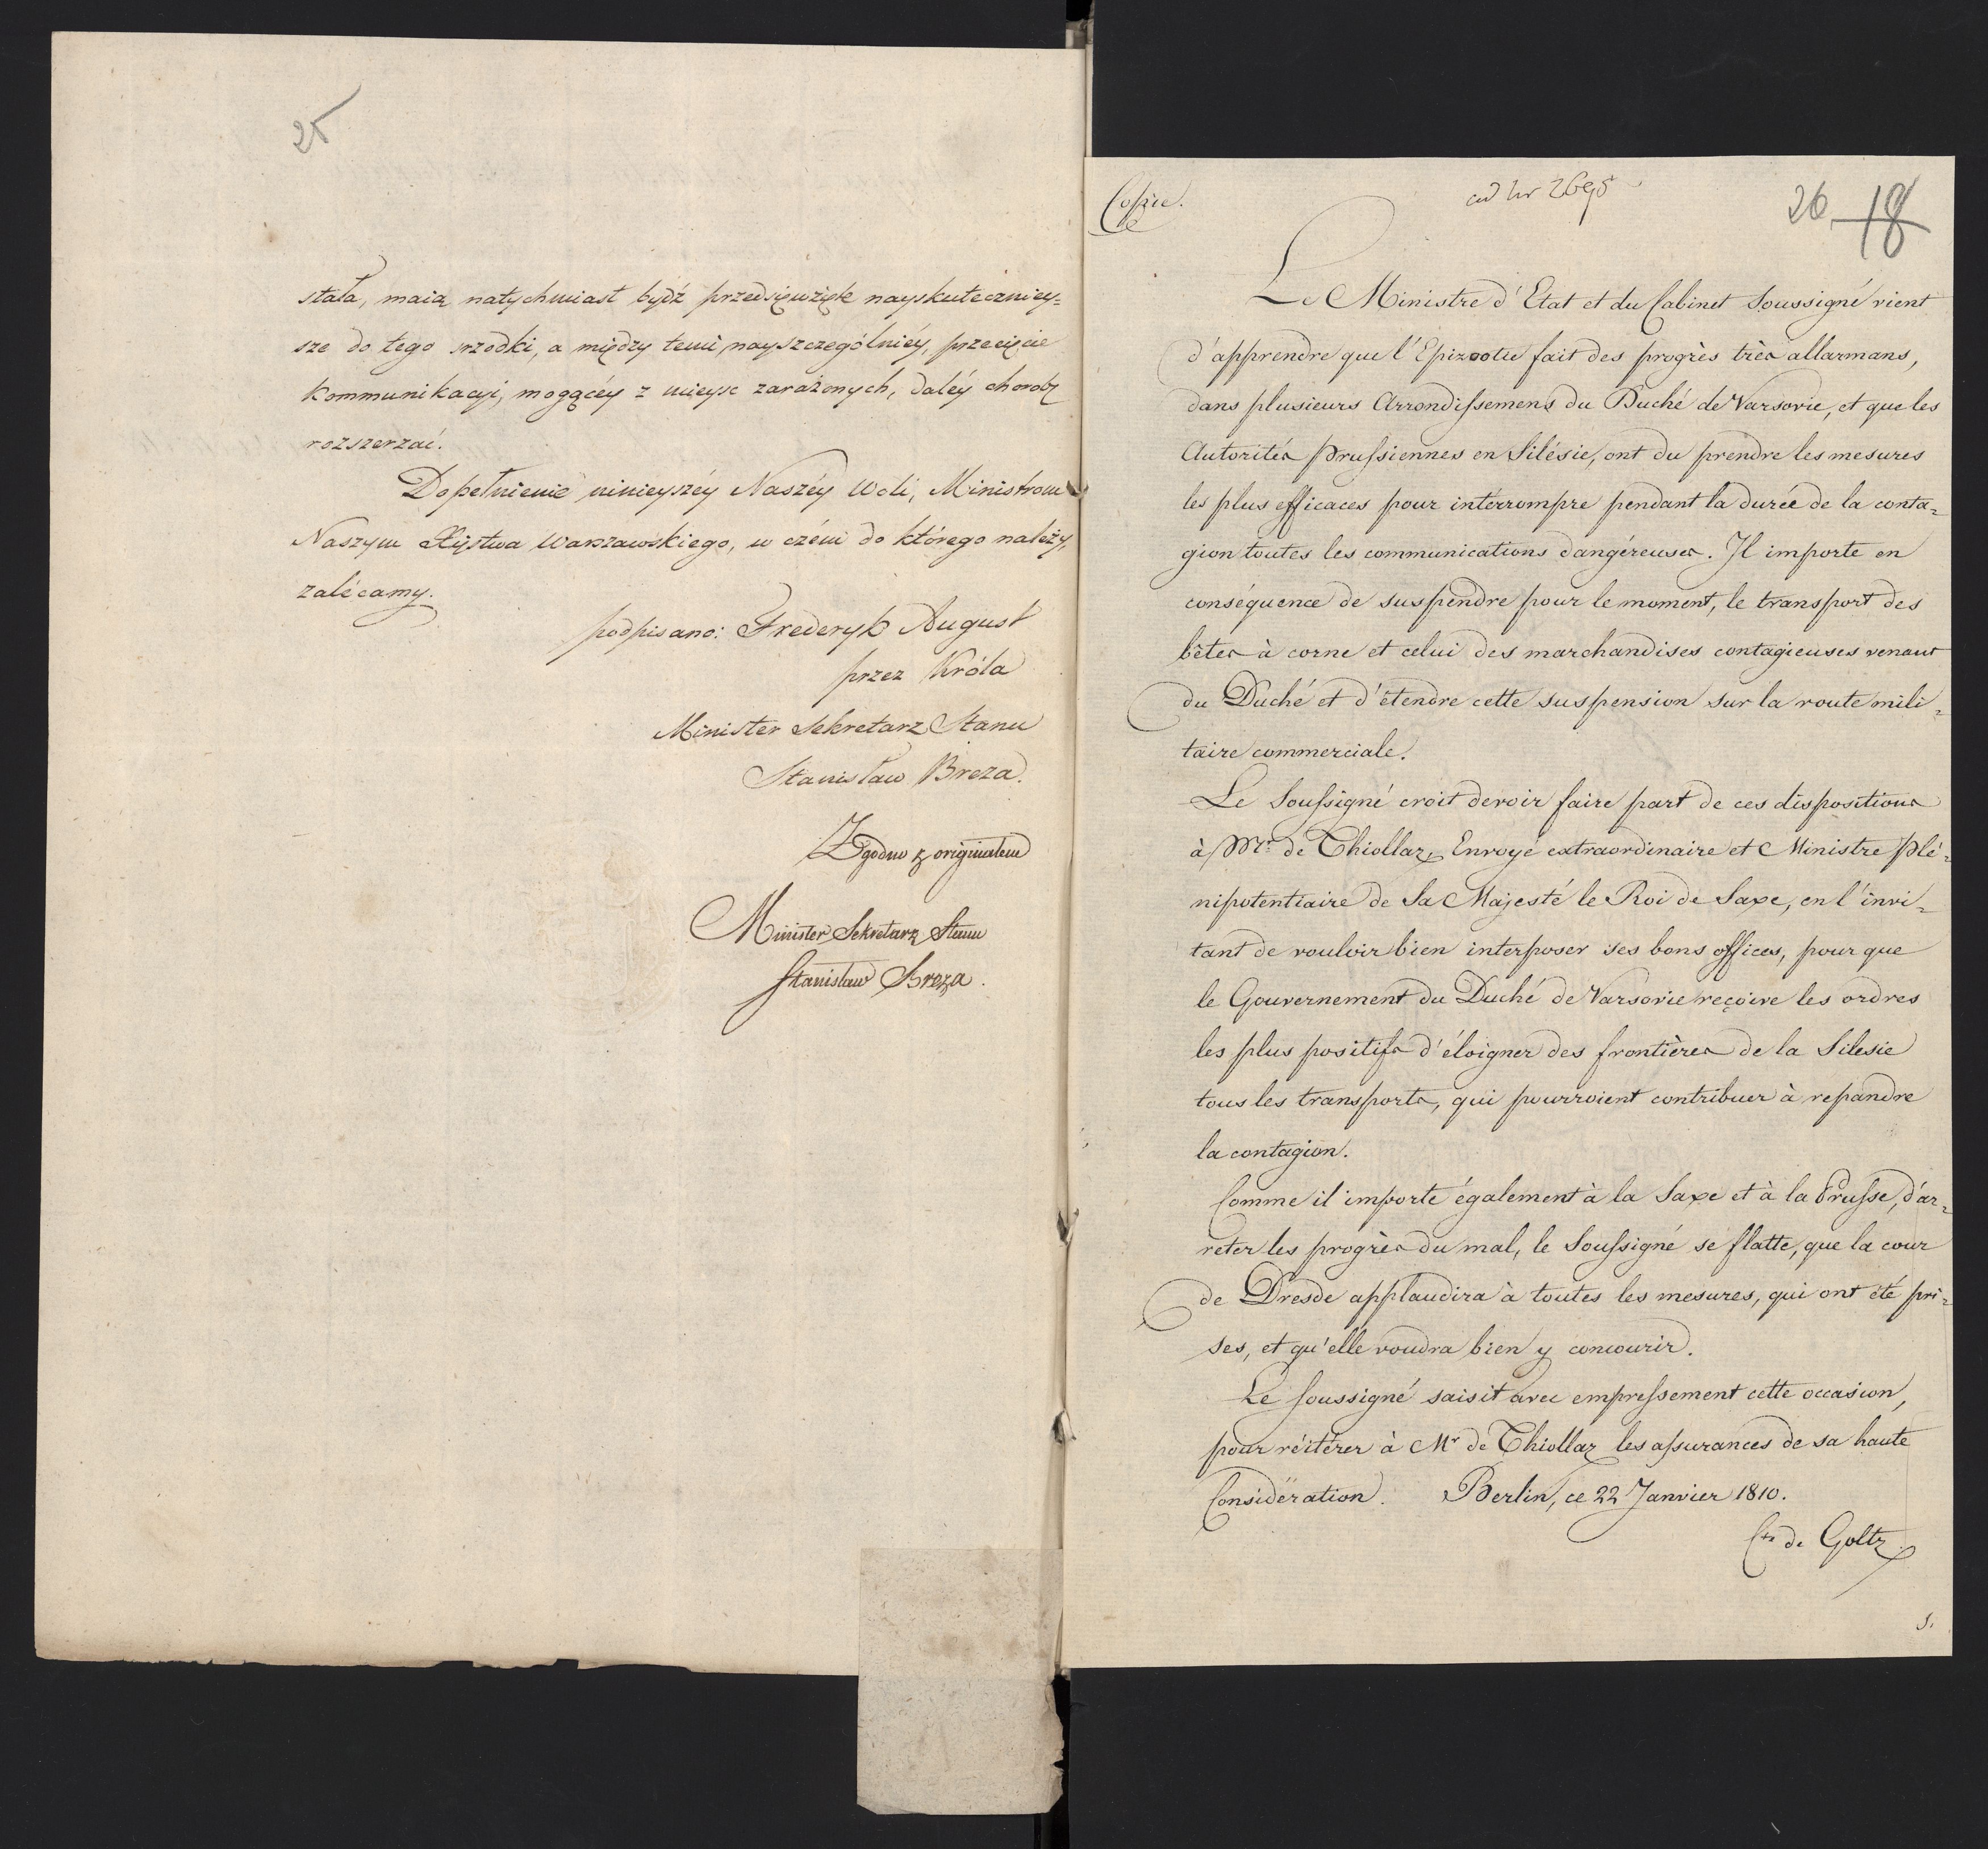 25
stała, maią natychmiast bydź przedsięwzięte nayskuteczniey=
sze do tego srzodki, a między temi nayszczególniéy, przecięcie
kommunikacyi, mogącéy z mieysc zarażonych, daléy chorobę
rozszerzać.
Dopełnienie ninieyszéy Naszéy Woli, Ministrom
Naszym Xięstwa Warszawskiego, w czém do którego należy,
zalécamy.
podpisano: Frederyk August
przez Króla
Minister Sekretarz Stanu
Stanisław Breza.
Zgodno z originałem
Minister Sekretarz Stanu
Stanisław Breza.
Copie.
ad Nr 2695
26 18
Le Ministre d'Etat et du Cabinet Soussigné vient
d'apprendre que l'Epizootie fait des progrès très allarmans,
dans plusieurs Arrondissemens du Duché de Varsovie, et que les
Autorités Prussiennes en Silésie, ont du prendre les mesures
les plus efficaces pour intérrompre pendant la durée de la conta=
gion toutes les communications dangéreuses. Il importe en
conséquence de suspendre pour le moment, le transport des
bêtes à corne et celui des marchandises contagieuses venant
du Duché et d'étendre cette suspension sur la route mili=
taire commerciale.
Le Soussigné croit devoir faire part de ces dispositions
à Mr. de Thiollaz, Envoyé extraordinaire et Ministre Plé=
nipotentiaire de Sa Majesté le Roi de Saxe, en l'invi=
tant de vouloir bien interposer ses bons offices, pour que
le Gouvernement du Duché de Varsovie reçoive les ordres
les plus positifs d'éloigner des frontières de la Silesie
tous les transports, qui pourroient contribuer à repandre
la contagion.
Comme il importe également à la Saxe et à la Prusse, d'ar=
reter les progrès du mal, le Soussigné se flatte, que la cour
de Dresde applaudira à toutes les mesures, qui ont été pri=
ses, et qu'elle voudra bien y concourir.
Le soussigné saisit avec empressement cette occasion,
pour réitérer à Mr de Thiollaz les assurances de sa haute
Considération. Berlin, ce 22 Janvier 1810.
Cte de Goltz